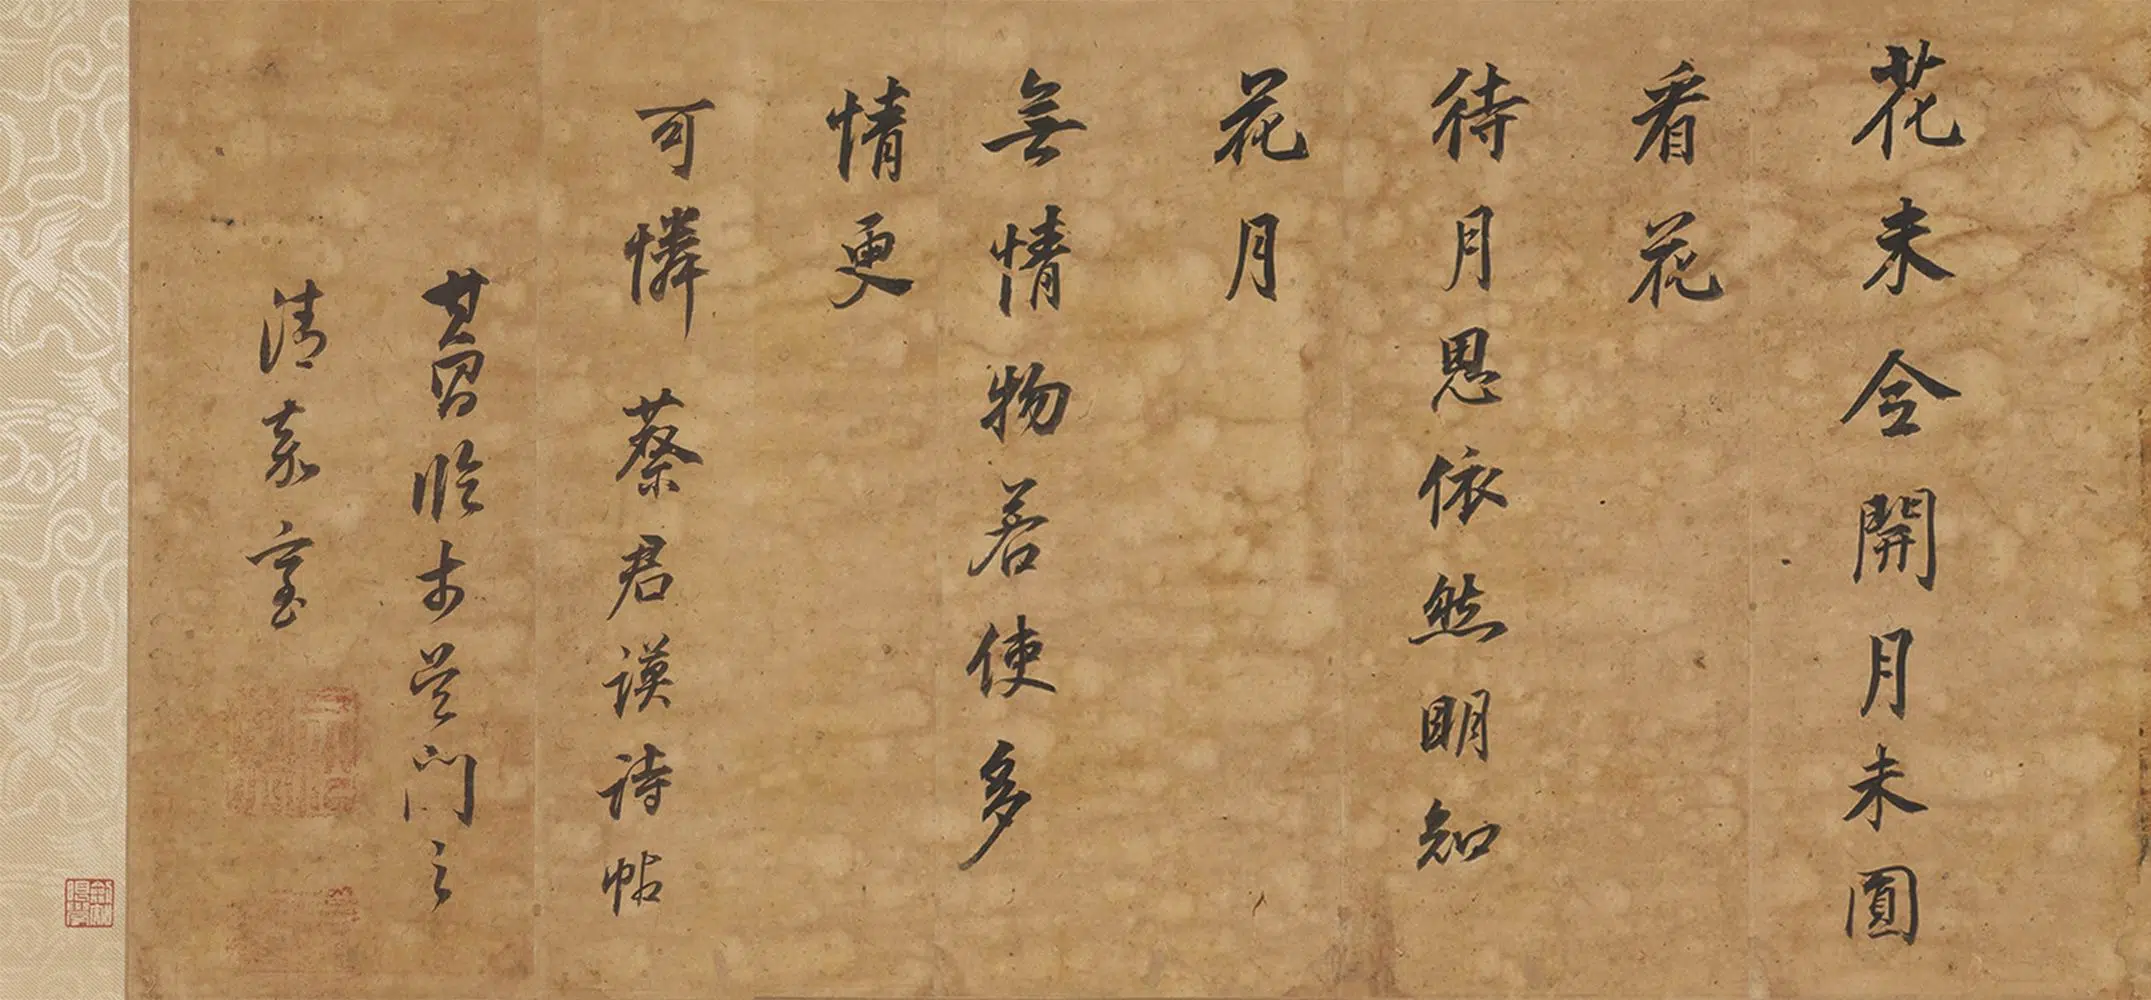 花未全開月未圓
看花
待月思依然明知
花月
無情物若使多
情更
可憐 蔡君謨詩帖
其昌臨於吳門之
清 室